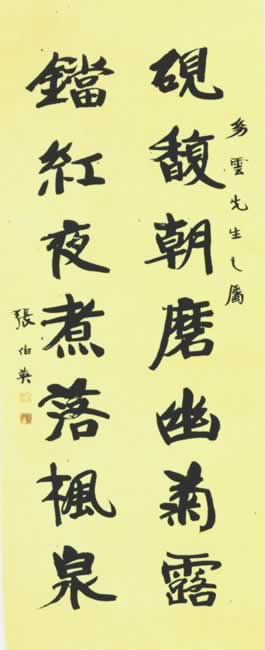 雲先生之屬
硯馥朝磨幽菊露
鐺紅夜煮落楓泉
張伯英